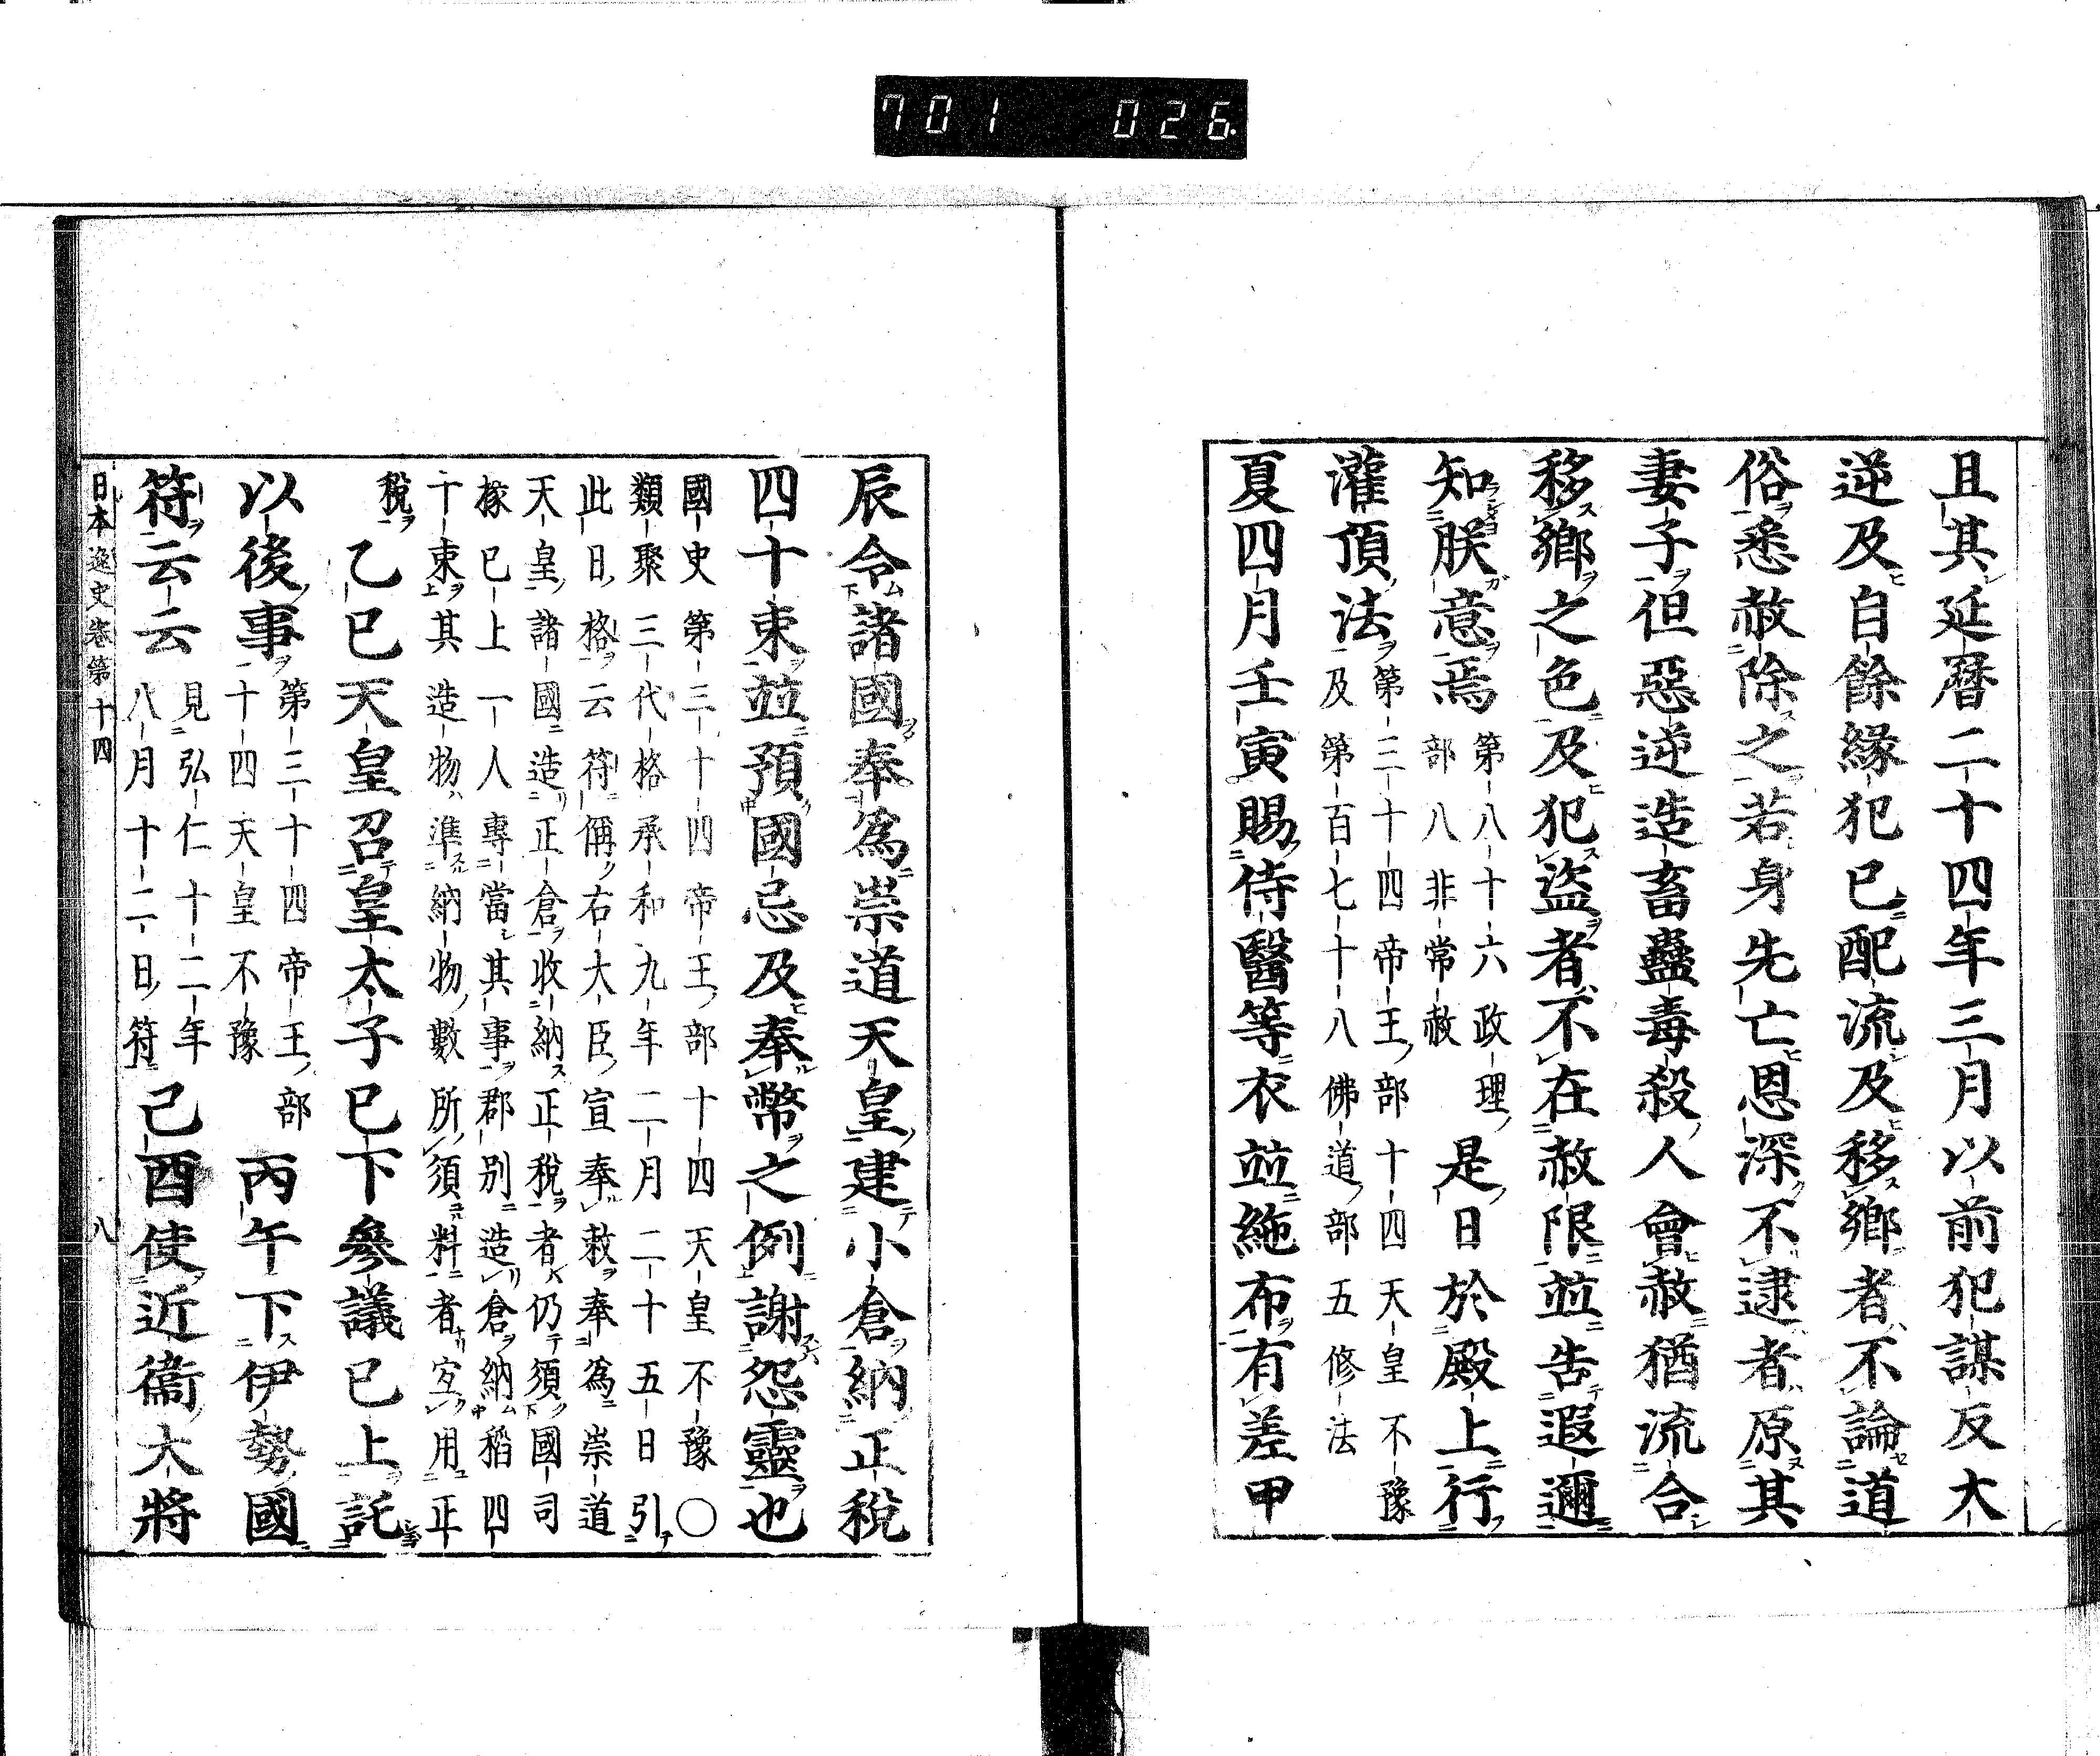 701 026
且其延曆二十四年三月以前犯謀反大
逆及自餘緣犯已配流及移鄉者不論道
俗悉赦除之若身先亡恩深不逮者原其
妻子但惡逆造畜蠱毒殺人會赦猶流合
移鄉之色及犯盜者不在赦限並告遐邇
知朕意焉
第八十六政理
部八非常赦
是日於殿上行
灌頂法
第三十四帝王部十四天皇不豫
及第百七十八佛道部五修法
夏四月壬寅賜侍醫等衣並絁布有差甲
辰令諸國奉爲崇道天皇建小倉納正稅
四十束並預國忌及奉幣之例謝怨靈也
國史第三十四帝王部十四天皇不豫〇
類聚三代格承和九年二月二十五日引
此日格云符偁右大臣宣奉敕奉爲崇道
天皇諸國造正倉收納正稅者仍須國司
椽已上一人專當其事郡別造倉納稻四
十束其造物準納物數所須料者宐用正
稅
乙巳天皇召皇太子已下參議已上託
以後事
第三十四帝王部
十四天皇不豫
丙午下伊勢國
符云云
見弘仁十二年
八月十二日符
己酉使近衞大將
日本逸史卷第十四
八